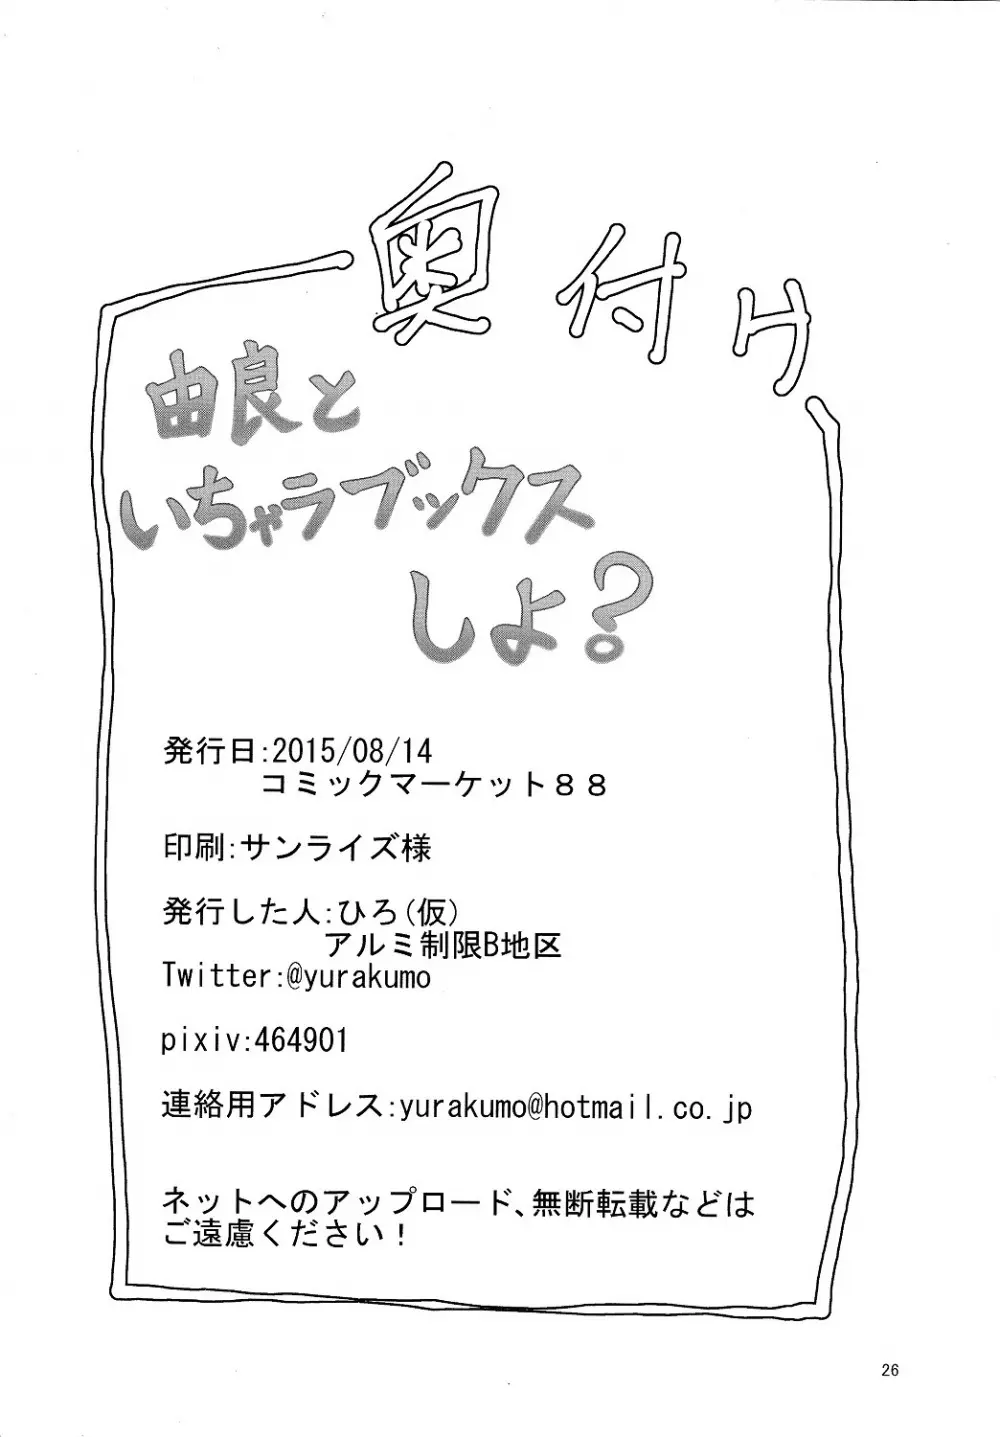 奥付け
由良と
いちゃラブックス
しよ?
発行日:2015/08/14
コミックマーケット88
印刷:サンライズ様
発行した人:ひろ(仮)
アルミ制限B地区
Twitter:@yurakumo
pixiv:464901
連絡用アドレス:yurakumo@hotmail.co.jp
ネットへのアップロード、無断転載などは
ご遠慮ください!
26